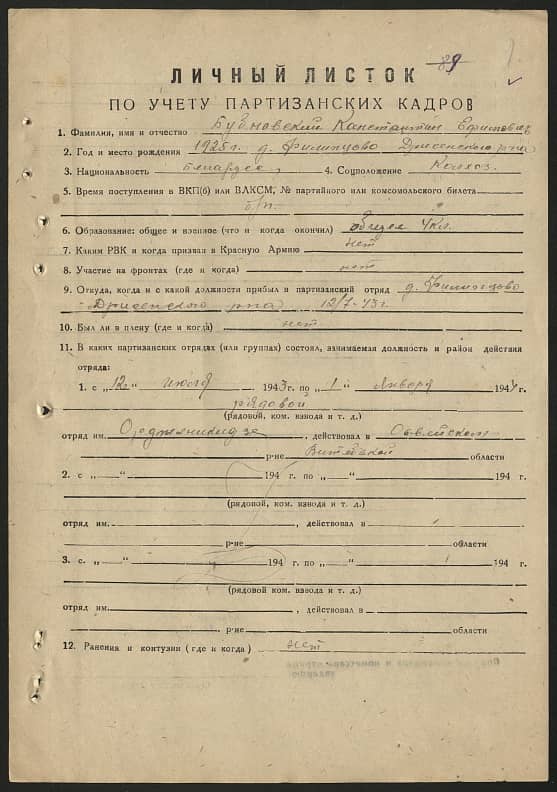 89
ЛИЧНЫЙ ЛИСТОК
ПО УЧЕТУ ПАРТИЗАНСКИХ КАДРОВ
1. Фамилия, имя и отчество Бубновский Константин
2. Год и место рождения 1925 г. д. Филипцово Дриссенского р-на
3. Национальность белорусс 4. Соцположение Колхоз.
5. Время поступления в ВКП(б) или ВЛКСМ, № партийного или комсомольского билета
б/п.
6. Образование: общее и военное (что и когда окончил) общее 4 кл.
7. Каким РВК и когда призван в Красную Армию нет
8. Участие на фронтах (где и когда) нет
9. Откуда, когда и с какой должности прибыл в партизанский отряд д. Филипцово
Дриссенского р-на 12/7-43 г.
10. Был ли в плену (где и когда) нет
11. В каких партизанских отрядах (или группах) состоял, занимаемая должность и район действия
отряда:
1. с „12“ июля 1943 г. по „1“ Января 1944 г.
рядовой
(рядовой, ком. взвода и т. д.)
отряд им. Орджоникидзе, действовал в Освейском
р-не Витебской области
2. с „ “ 194 г. по „ “ 194 г.
(рядовой, ком. взвода и т. д.)
отряд им. , действовал в
р-не области
3. с. „ “ 194 г. по „ “ 194 г.
(рядовой, ком. взвода и т. д.)
отряд им. , действовал в
р-не области
12. Ранения и контузии (где и когда) нет